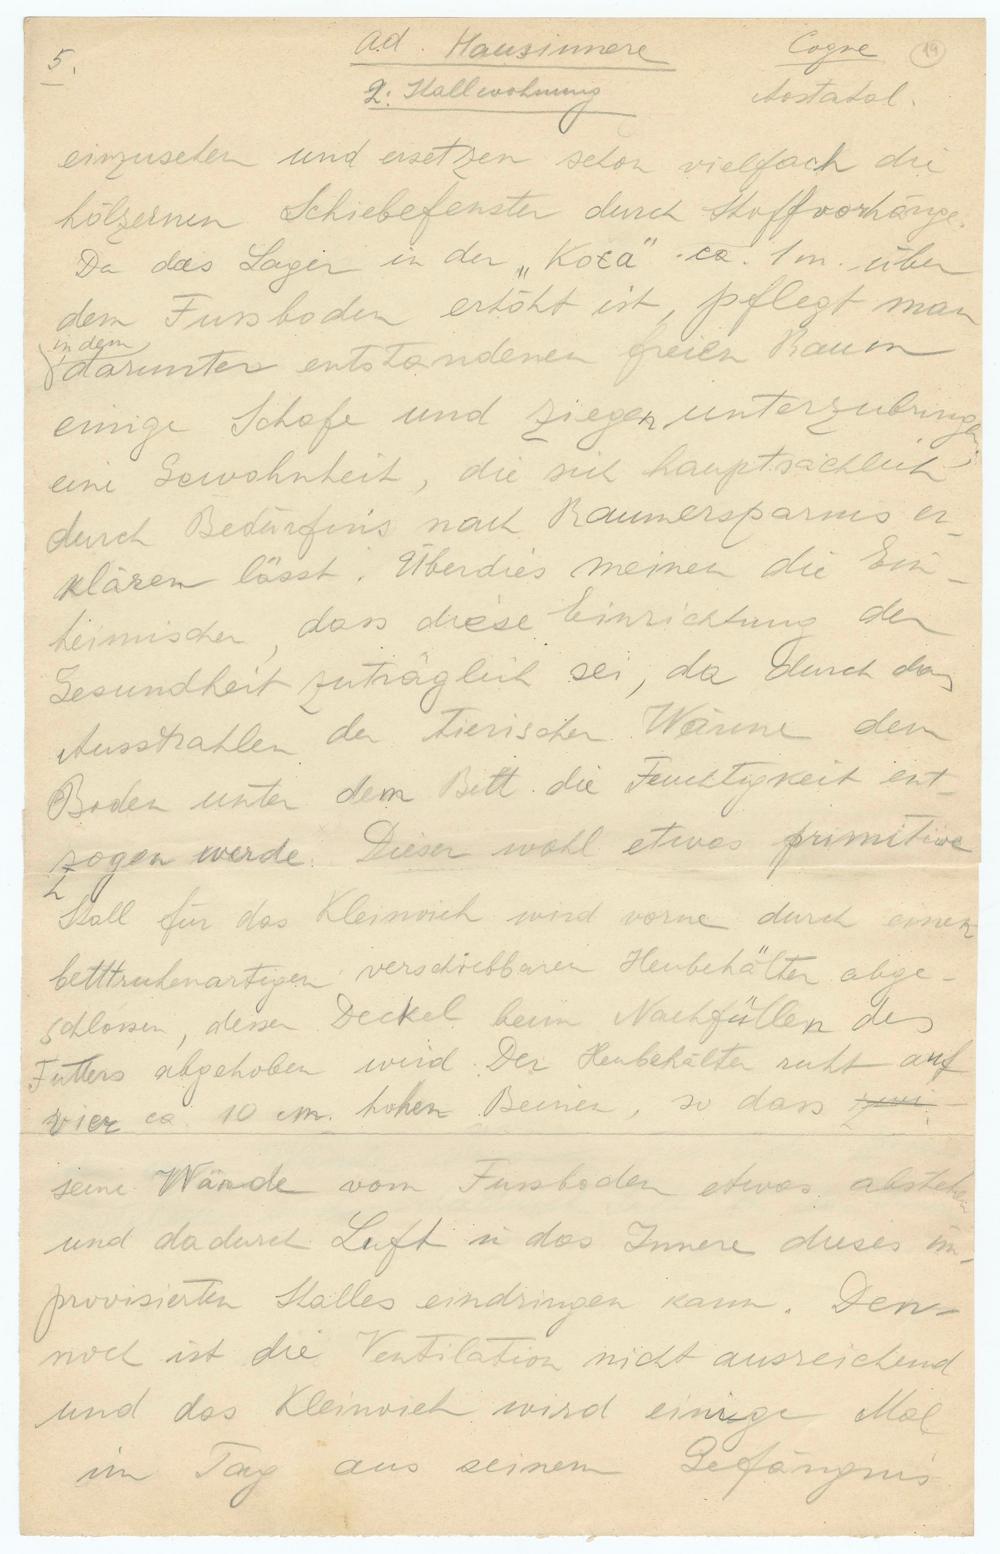 5.
ad. Hausinnere
Cogne
19
2. Stallwohnung
Aostatal.
einzusehen und ersetzen schon vielfach die
hölzernen Schiebefenster durch Stoffvorhänge.
Da das Lager in der „Koċa" ca. 1 m. über
dem Fussboden erhöht ist, pflegt man
in dem
darunter entstandenen freien Raum
einige Schafe und Ziegen unterzubringen,
eine Gewohnheit, die sich hauptsächlich
durch Bedürfnis nach Raumersparnis er-
klären lässt. Überdies meinen die Ein-
heimischen, dass diese Einrichtung der
Gesundheit zuträglich sei, da durch das
Ausstrahlen der tierischen Wärme dem
Boden unter dem Bett die Feuchtigkeit ent-
zogen werde. Dieser wohl etwas primitive
Stall für das Kleinvieh wird vorne durch einen
betttruhenartigen verschiebbaren Heubehälter abge-
schlossen, dessen Deckel beim Nachfüllen des
Futters abgehoben wird. Der Heubehälter ruht auf
vier ca 10 cm. hohen Beinen, so dass
seine Wände vom Fussboden etwas abstehen
und dadurch Luft in das Innere dieses im-
provisierten Stalles eindringen kann. Den-
noch ist die Ventilation nicht ausreichend
und das Kleinvieh wird einige Mal
im Tag aus seinem Gefängnis